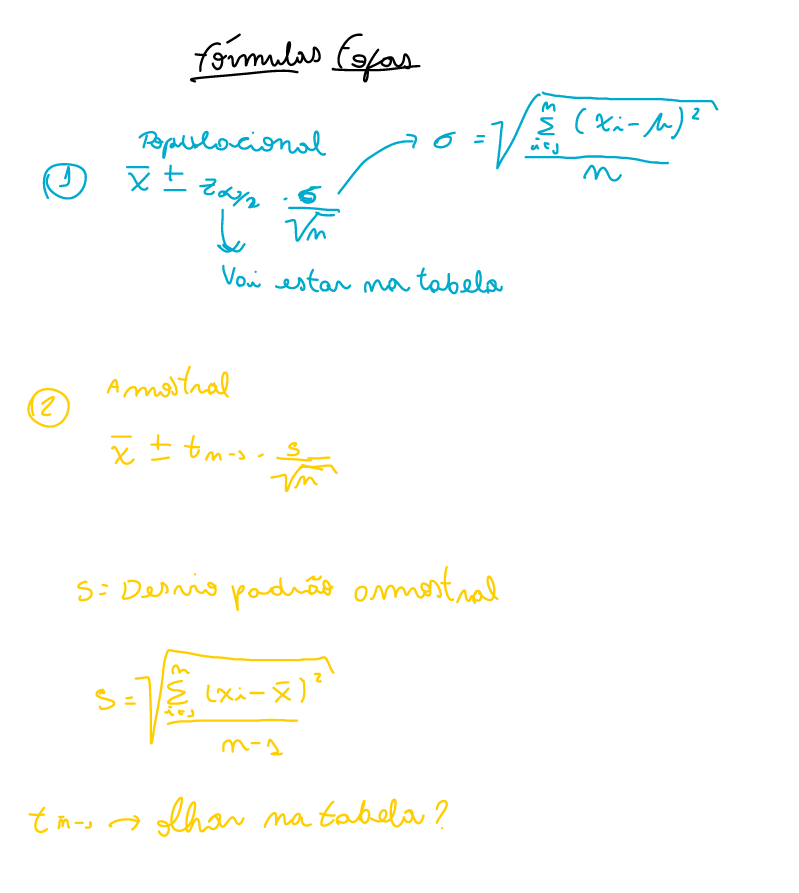 Fórmulas Fofas
Populacional
① x̄ ± z α/2 · σ/√n → σ = √(∑ i=1 n (xi - μ)² / n)
Vai estar na tabela
② Amostral
x̄ ± t n-1 · s/√n
S = Desvio padrão amostral
S = √(∑ i=1 n (xi - x̄)² / n-1)
t n-1 → olhar na tabela?